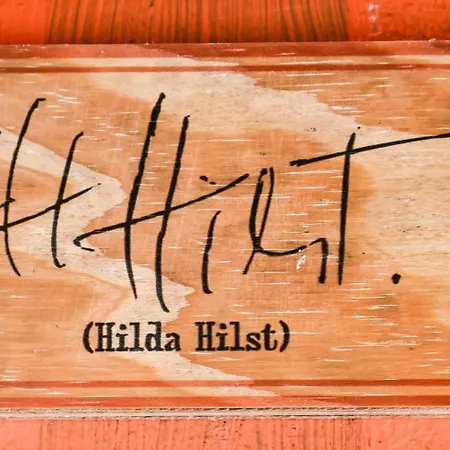 H H Hilst.
(Hilda Hilst)